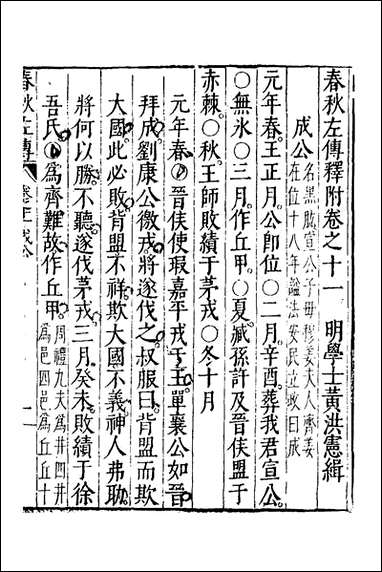 春秋左傳釋附卷之十一　明學士黃洪憲緝
成公名黑肱宣公子母穆姜夫人齊姜
在位十八年謚法安民立政曰成
元年春王正月公即位○二月辛酉葬我君宣公
○無氷○三月作丘甲○夏臧孫許及晉侯盟于
赤棘○秋王師敗績于茅戎○冬十月
元年春○晉侯使瑕嘉平戎于王單襄公如晉
拜成劉康公徼戎將遂伐之叔服曰背盟而欺
大國此必敗背盟不祥欺大國不義神人弗助
將何以勝不聽遂伐茅戎三月癸未敗績于徐
吾氏○為齊難故作丘甲周禮九夫為井四井
為邑四邑為丘丘十
春秋左傳